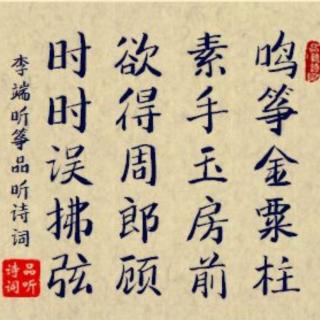 鸣筝金粟柱
素手玉房前
欲得周郎顾
时时误拂弦
李端听筝品听诗词
品听
诗词